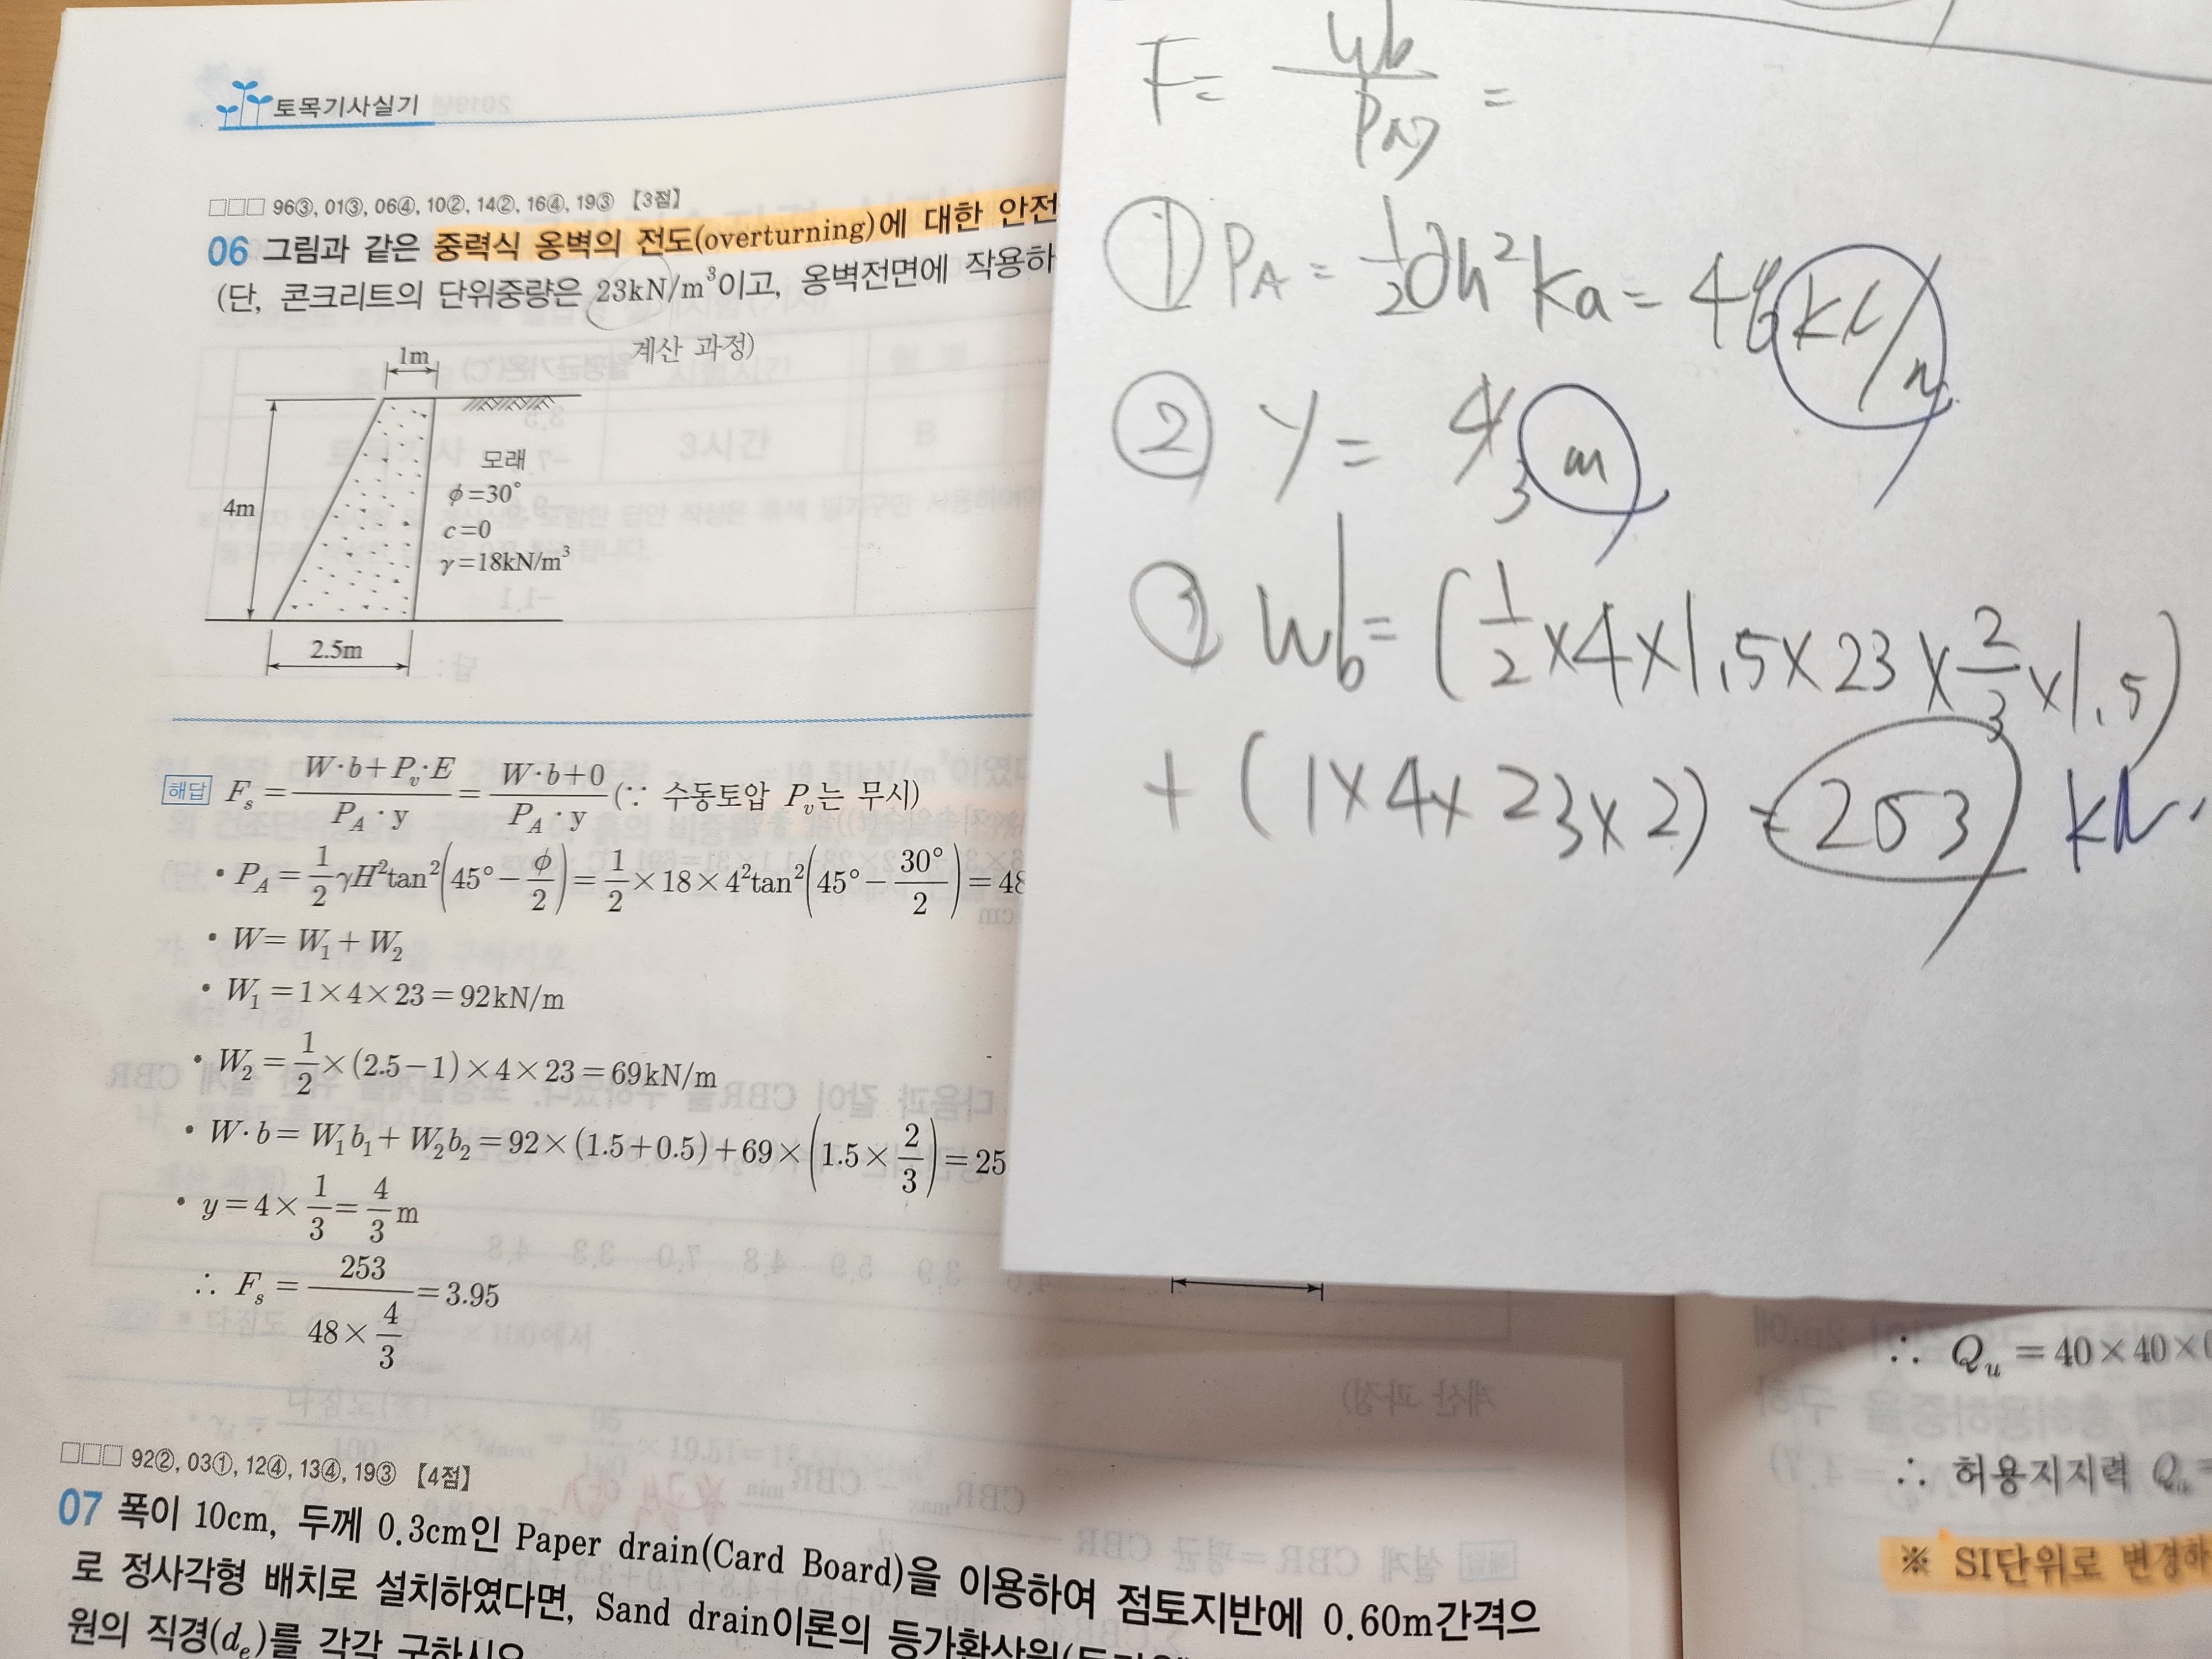 토목기사실기
□□□ 96③, 01③, 06④, 10②, 14②, 16④, 19③ 【3점】
06 그림과 같은 중력식 옹벽의 전도(overturning)에 대한 안전
(단, 콘크리트의 단위중량은 23kN/m³이고, 옹벽전면에 작용하
계산 과정)
1m
4m
모래
ϕ=30°
c=0
γ=18kN/m³
2.5m
해답 F_s = (W·b+P_v·E)/(P_A·y) = (W·b+0)/(P_A·y) (∵ 수동토압 P_v는 무시)
• P_A = 1/2 γH²tan²(45°−ϕ/2) = 1/2 ×18×4²tan²(45°−30°/2) = 48
• W = W₁+W₂
• W₁ = 1×4×23 = 92kN/m
• W₂ = 1/2 ×(2.5−1)×4×23 = 69kN/m
• W·b = W₁b₁+W₂b₂ = 92×(1.5+0.5)+69×(1.5×2/3) = 25
• y = 4×1/3 = 4/3 m
∴ F_s = 253/(48×4/3) = 3.95
□□□ 92②, 03①, 12④, 13④, 19③ 【4점】
07 폭이 10cm, 두께 0.3cm인 Paper drain(Card Board)을 이용하여 점토지반에 0.60m간격으
로 정사각형 배치로 설치하였다면, Sand drain이론의 등가환산원
원의 직경(d_e)를 각각 구하시오
F = Wb/P_Ay =
① P_A = 1/2 γh² ka = 48 kN/m
② y = 4/3 m
③ Wb = (1/2×4×1.5×23×2/3×1.5)
+ (1×4×23×2) = 253 kN.
∴ Q_u = 40×40×
∴ 허용지지력 Q
※ SI단위로 변경하